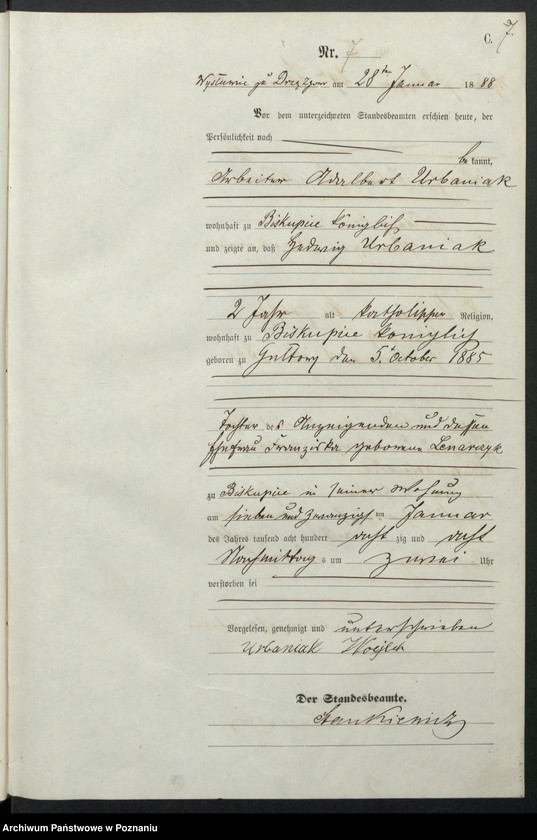 C. 7.
Nr. 7
am 28ten Januar 1888
Vor dem unterzeichneten Standesbeamten erschien heute, der
Persönlichkeit nach
be kannt,
Arbeiter Adalbert Urbaniak
wohnhaft zu Biskupice königlich
und zeigte an, daß Hedwig Urbaniak
2 Jahr alt katholischer Religion,
wohnhaft zu Biskupice königlich
geboren zu den 5. October 1885
Tochter des Anzeigenden und dessen
Ehefrau Franziska geborene Lenarczyk
zu Biskupice in seiner Wohnung
am sieben und zwanzigsten Januar
des Jahres tausend acht hundert acht zig und acht
Nachmittag s um zwei Uhr
verstorben sei
Vorgelesen, genehmigt und unterschrieben
Urbaniak
Der Standesbeamte.
Stankiewicz
Archiwum Państwowe w Poznaniu